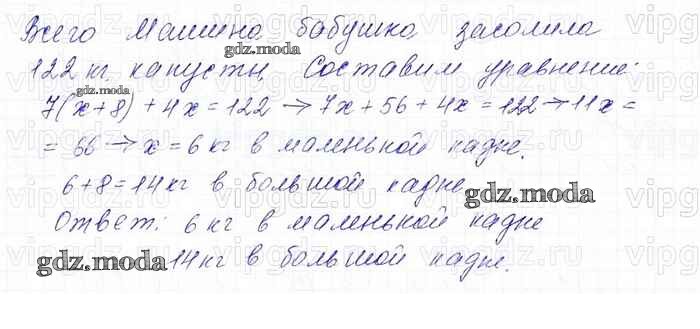 Всего Машина бабушка засолила
gdz.moda
122 кг капусты Составим уравнение:
gdz.moda
7(x+8) + 4x = 122 → 7x + 56 + 4x = 122 → 11x =
= 66 → x = 6 кг в маленькой кадке.
6 + 8 = 14 кг в большой кадке
gdz.moda
Ответ: 6 кг в маленькой кадке
gdz.moda 14 кг в большой кадке.